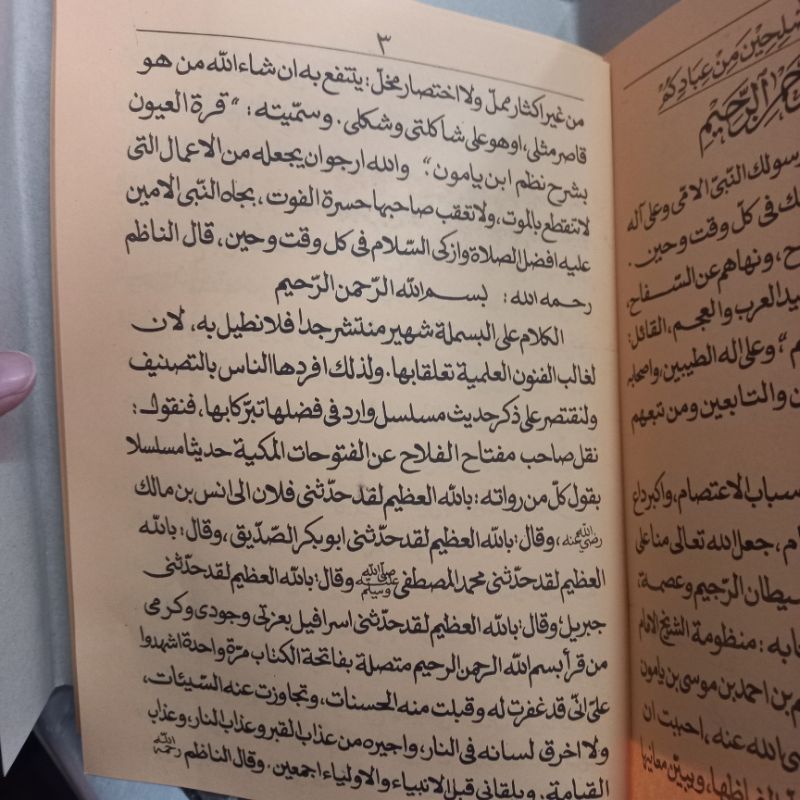 ٣
من غير اكثار ممل ولا اختصار مخل: ينتفع به ان شاء الله من هو
قاصر مثلى، او هو على شاكلتى وشكلى. وسمّيته: "قرة العيون
بشرح نظم ابن يامون". والله ارجو ان يجعله من الاعمال التى
لا تنقطع بالموت، ولا تعقب صاحبها حسرة الفوت، بجاه النّبى الامين
عليه افضل الصلاة وازكى السّلام فى كل وقت وحين، قال الناظم
رحمه الله: بسم الله الرّحمن الرّحيم
الكلام على البسملة شهير منتشر جدا فلا نطيل به، لان
لغالب الفنون العلمية تعلقا بها. ولذلك افردها الناس بالتصنيف
ولنقتصر على ذكر حديث مسلسل وارد فى فضلها تبرّكا بها، فنقول:
نقل صاحب مفتاح الفلاح عن الفتوحات المكية حديثا مسلسلا
بقول كلّ من رواته: بالله العظيم لقد حدّثنى فلان الى انس بن مالك
رضي الله عنه، وقال: بالله العظيم لقد حدّثنى ابو بكر الصّدّيق، وقال: بالله
العظيم لقد حدّثنى محمد المصطفى صلى الله عليه وسلم وقال: بالله العظيم لقد حدّثنى
جبريل؛ وقال: بالله العظيم لقد حدّثنى اسرافيل بعزتى وجودى وكرمى
من قرأ بسم الله الرحمن الرحيم متصلة بفاتحة الكتاب مرّة واحدة اشهدوا
علىّ انّى قد غفرت له وقبلت منه الحسنات، وتجاوزت عنه السّيئات،
ولا احرق لسانه فى النار، واجيره من عذاب القبر وعذاب النار، وعذاب
القيامة. ويلقانى قبل الانبياء والاولياء اجمعين. وقال الناظم رحمه الله
صلحين من عبادكم
الرّحيم
رسولك النّبىّ الامّى وعلى آله
فى كلّ وقت وحين.
ونهاهم عن السّفاح،
العرب والعجم، القائل:
وعلى اله الطيبين، واصحابه
والتابعين ومن تبعهم
الاعتصام، واكبر داع
جعل الله تعالى منا على
الرّجيم وعصمة،
منظومة الشيخ الامام
بن احمد بن موسى بن يامون
الله عنه، احببت ان
ويبيّن معانيها